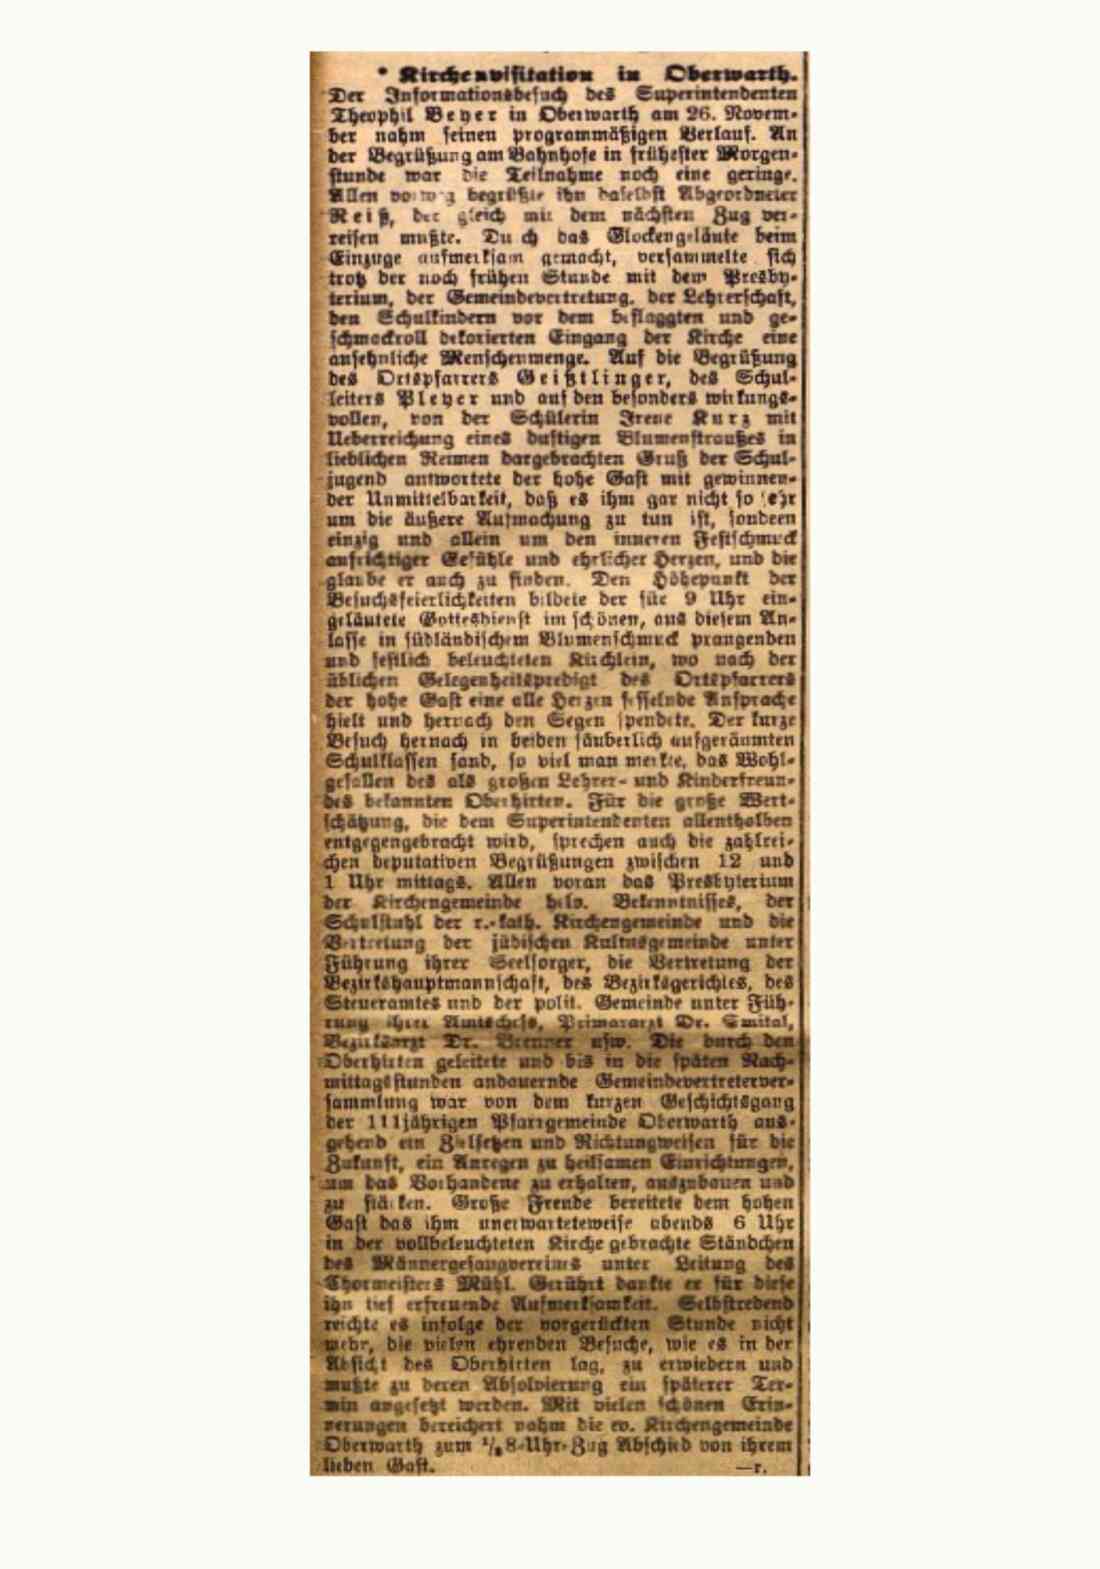 * Kirchenvisitation in Oberwarth.
Der Informationsbesuch des Superintendenten
Theophil Beyer in Oberwarth am 26. Novem-
ber nahm seinen programmäßigen Verlauf. An
der Begrüßung am Bahnhofe in frühester Morgen-
stunde war die Teilnahme noch eine geringe.
Allen vorweg begrüßte ihn daselbst Abgeordneter
Reiß, der gleich mit dem nächsten Zug ver-
reisen mußte. Durch das Glockengeläute beim
Einzuge aufmerksam gemacht, versammelte sich
trotz der noch frühen Stunde mit dem Presby-
terium, der Gemeindevertretung, der Lehrerschaft,
den Schulkindern vor dem beflaggten und ge-
schmackvoll dekorierten Eingang der Kirche eine
ansehnliche Menschenmenge. Auf die Begrüßung
des Ortspfarrers Geistlinger, des Schul-
leiters Pleyer und auf den besonders wirkungs-
vollen, von der Schülerin Irene Kurz mit
Ueberreichung eines duftigen Blumenstraußes in
lieblichen Reimen dargebrachten Gruß der Schul-
jugend antwortete der hohe Gast mit gewinnen-
der Unmittelbarkeit, daß es ihm gar nicht so sehr
um die äußere Aufmachung zu tun ist, sondern
einzig und allein um den inneren Festschmuck
aufrichtiger Gefühle und ehrlicher Herzen, und die
glaube er auch zu finden. Den Höhepunkt der
Besuchsfeierlichkeiten bildete der für 9 Uhr ein-
geläutete Gottesdienst im schönen, aus diesem An-
lasse in südländischem Blumenschmuck prangenden
und festlich beleuchteten Kirchlein, wo nach der
üblichen Gelegenheitspredigt des Ortspfarrers
der hohe Gast eine alle Herzen fesselnde Ansprache
hielt und hernach den Segen spendete. Der kurze
Besuch hernach in beiden säuberlich aufgeräumten
Schulklassen fand, so viel man merkte, das Wohl-
gefallen des als großen Lehrer- und Kinderfreun-
des bekannten Oberhirten. Für die große Wert-
schätzung, die dem Superintendenten allenthalben
entgegengebracht wird, sprechen auch die zahlrei-
chen deputativen Begrüßungen zwischen 12 und
1 Uhr mittags. Allen voran das Presbyterium
der Kirchengemeinde helv. Bekenntnisses, der
Schulstuhl der r.-kath. Kirchengemeinde und die
Vertretung der jüdischen Kultusgemeinde unter
Führung ihrer Seelsorger, die Vertretung der
Bezirkshauptmannschaft, des Bezirksgerichtes, des
Steueramtes und der polit. Gemeinde unter Füh-
rung ihrer Amtschefs, Primararzt Dr. Smital,
Bezirksarzt Dr. Brenner usw. Die durch den
Oberhirten geleitete und bis in die späten Nach-
mittagsstunden andauernde Gemeindevertreterver-
sammlung war von dem kurzen Geschichtsgang
der 111jährigen Pfarrgemeinde Oberwarth aus-
gehend ein Zielsetzen und Richtungweisen für die
Zukunft, ein Anregen zu heilsamen Einrichtungen,
um das Vorhandene zu erhalten, auszubauen und
zu stärken. Große Freude bereitete dem hohen
Gast das ihm unerwarteteweise abends 6 Uhr
in der vollbeleuchteten Kirche gebrachte Ständchen
des Männergesangvereines unter Leitung des
Chormeisters Mühl. Gerührt dankte er für diese
ihn tief erfreuende Aufmerksamkeit. Selbstredend
reichte es infolge der vorgerückten Stunde nicht
mehr, die vielen ehrenden Besuche, wie es in der
Absicht des Oberhirten lag, zu erwiedern und
mußte zu deren Absolvierung ein späterer Ter-
min angesetzt werden. Mit vielen schönen Erin-
nerungen bereichert nahm die ev. Kirchengemeinde
Oberwarth zum ½8-Uhr-Zug Abschied von ihrem
lieben Gast. —r.